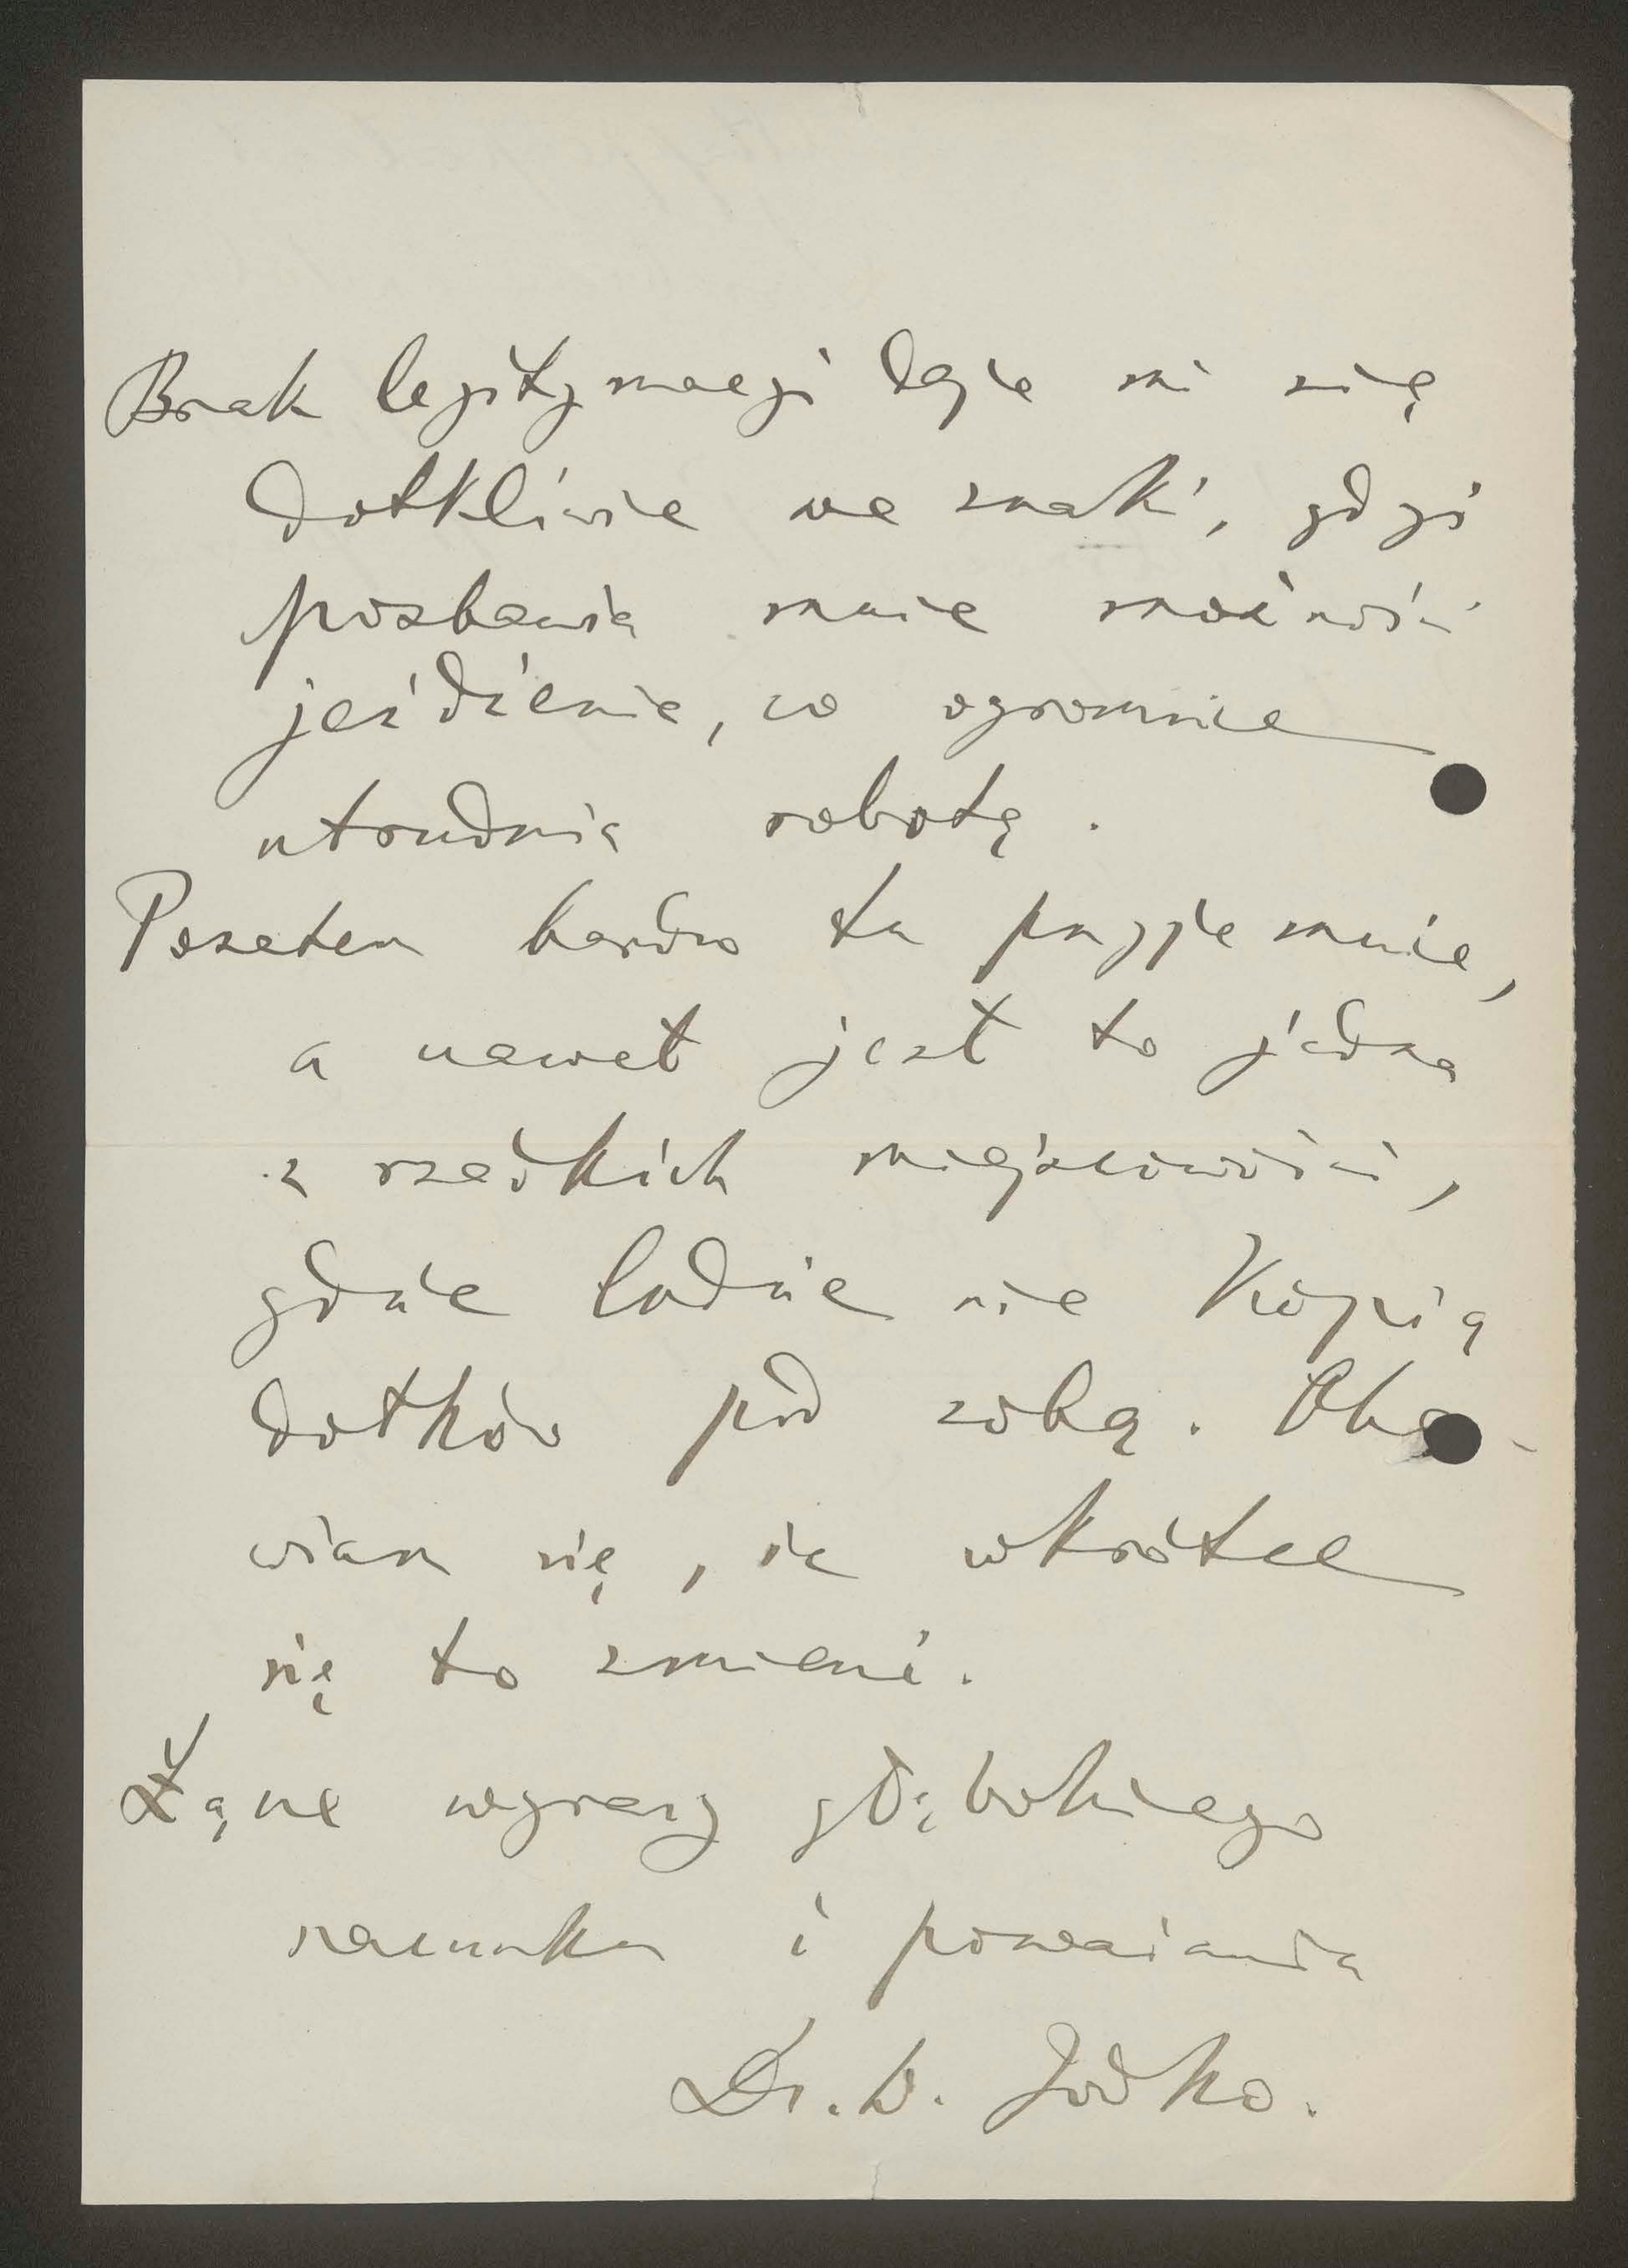 Brak legitymacji daje mi się
dotkliwie we znaki, gdyż
pozbawia mnie możności
jeżdżenia, co ogromnie
utrudnia robotę.
Pozatem bardzo tu przyjemnie,
a nawet jest to jedna
z rzadkich miejscowości,
gdzie ludzie nie kopią
dołków pod sobą. Oba-
wiam się, że wkrótce
się to zmieni.
Łączę wyrazy głębokiego
szacunku i poważania
Dr. W. Jodko.